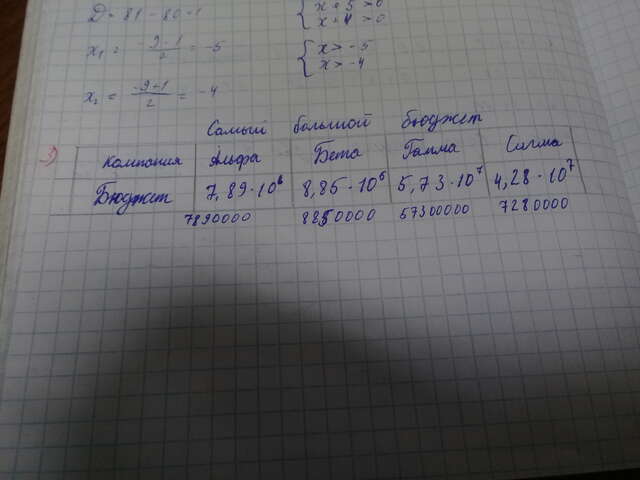 D = 81 - 80 = 1
{ x + 5 > 0
x + 4 > 0
x₁ = -9-1/2 = -5
{ x > -5
x > -4
x₂ = -9+1/2 = -4
Самый большой бюджет
Компания Альфа Бета Гамма Сигма
Бюджет 7,89·10⁶ 8,85·10⁶ 5,73·10⁷ 4,28·10⁷
7890000 8850000 57300000 7280000